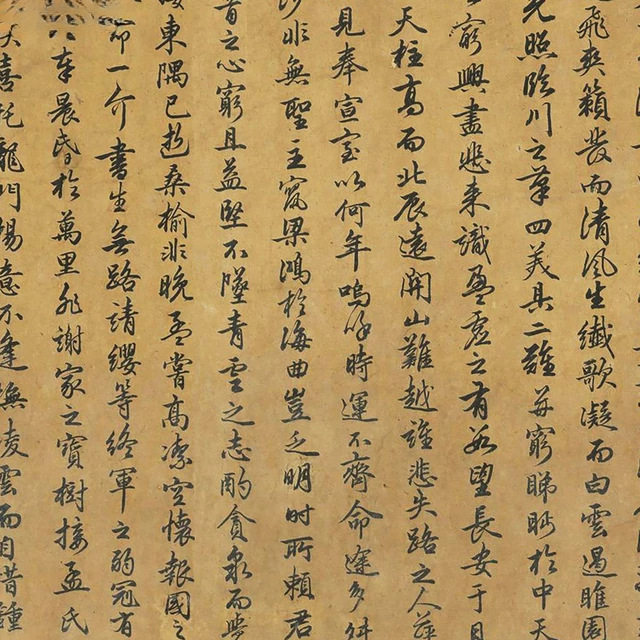 飛爽籟發而清風生纖歌凝而白雲遏睢園
光照臨川之筆四美具二難并窮睇眄於中天
窮興盡悲來識盈虛之有數望長安于日
天柱高而北辰遠關山難越誰悲失路之人萍
見奉宣室以何年嗚呼時運不齊命途多舛
沙非無聖主竄梁鴻於海曲豈乏明時所賴君
首之心窮且益堅不墜青雲之志酌貪泉而覺
東隅已逝桑榆非晚孟嘗高潔空懷報國之
命一介書生無路請纓等終軍之弱冠有
奉晨昏於萬里非謝家之寶樹接孟氏
喜託龍門楊意不逢撫凌雲而自惜鍾